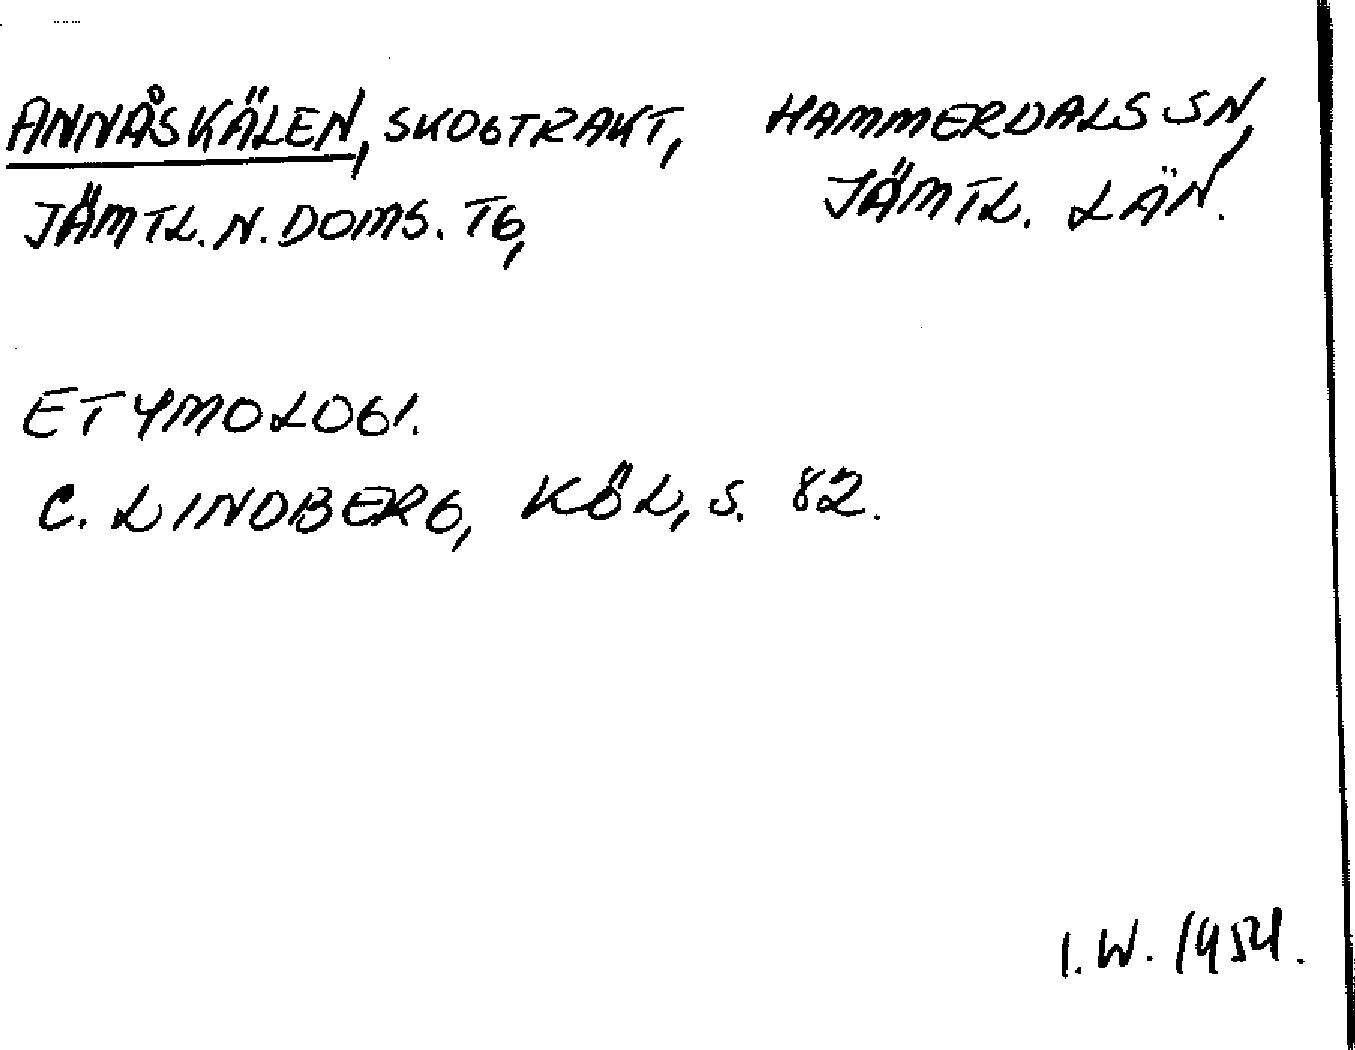 ANNÅSKÄLEN, SKOGTRAKT,
JÄMTL. N. DOMS. TG,
HAMMERDALS SN,
JÄMTL. LÄN.
ETYMOLOGI.
C. LINDBERG, KÖL, S. 82.
I. W. 1954.